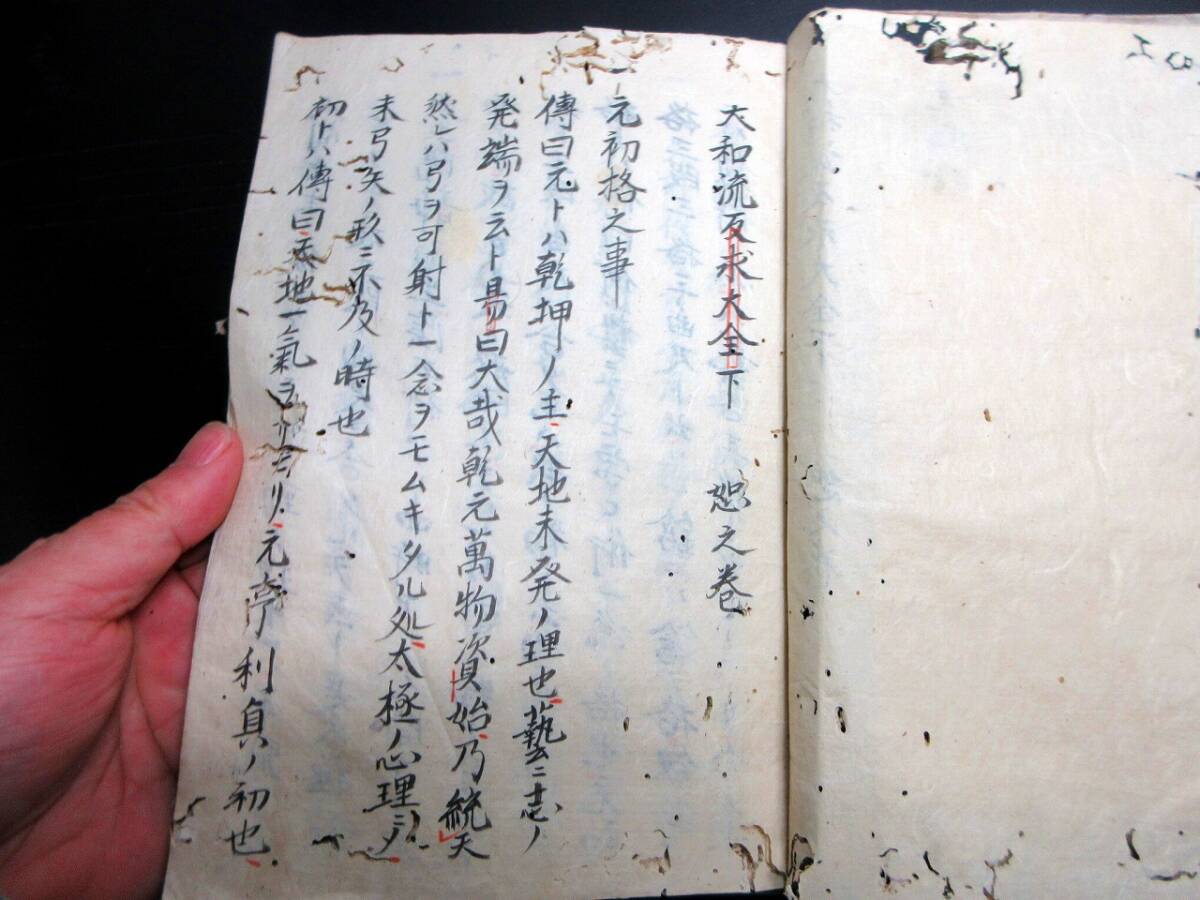 大和流反求大全下　恕之巻
元初格之事
傳曰元トハ乾押ノ主天地未発ノ理也藝ニ志ノ
発端ヲ云ト易曰大哉乾元萬物資始乃統天
然レハ弓ヲ可射ト一念ヲモムキタル処太極ノ心理ニ〆
未弓矢ノ形ニ不及ノ時也
初トハ傳曰天地一氣ヲ リ元亨利貞ノ初也